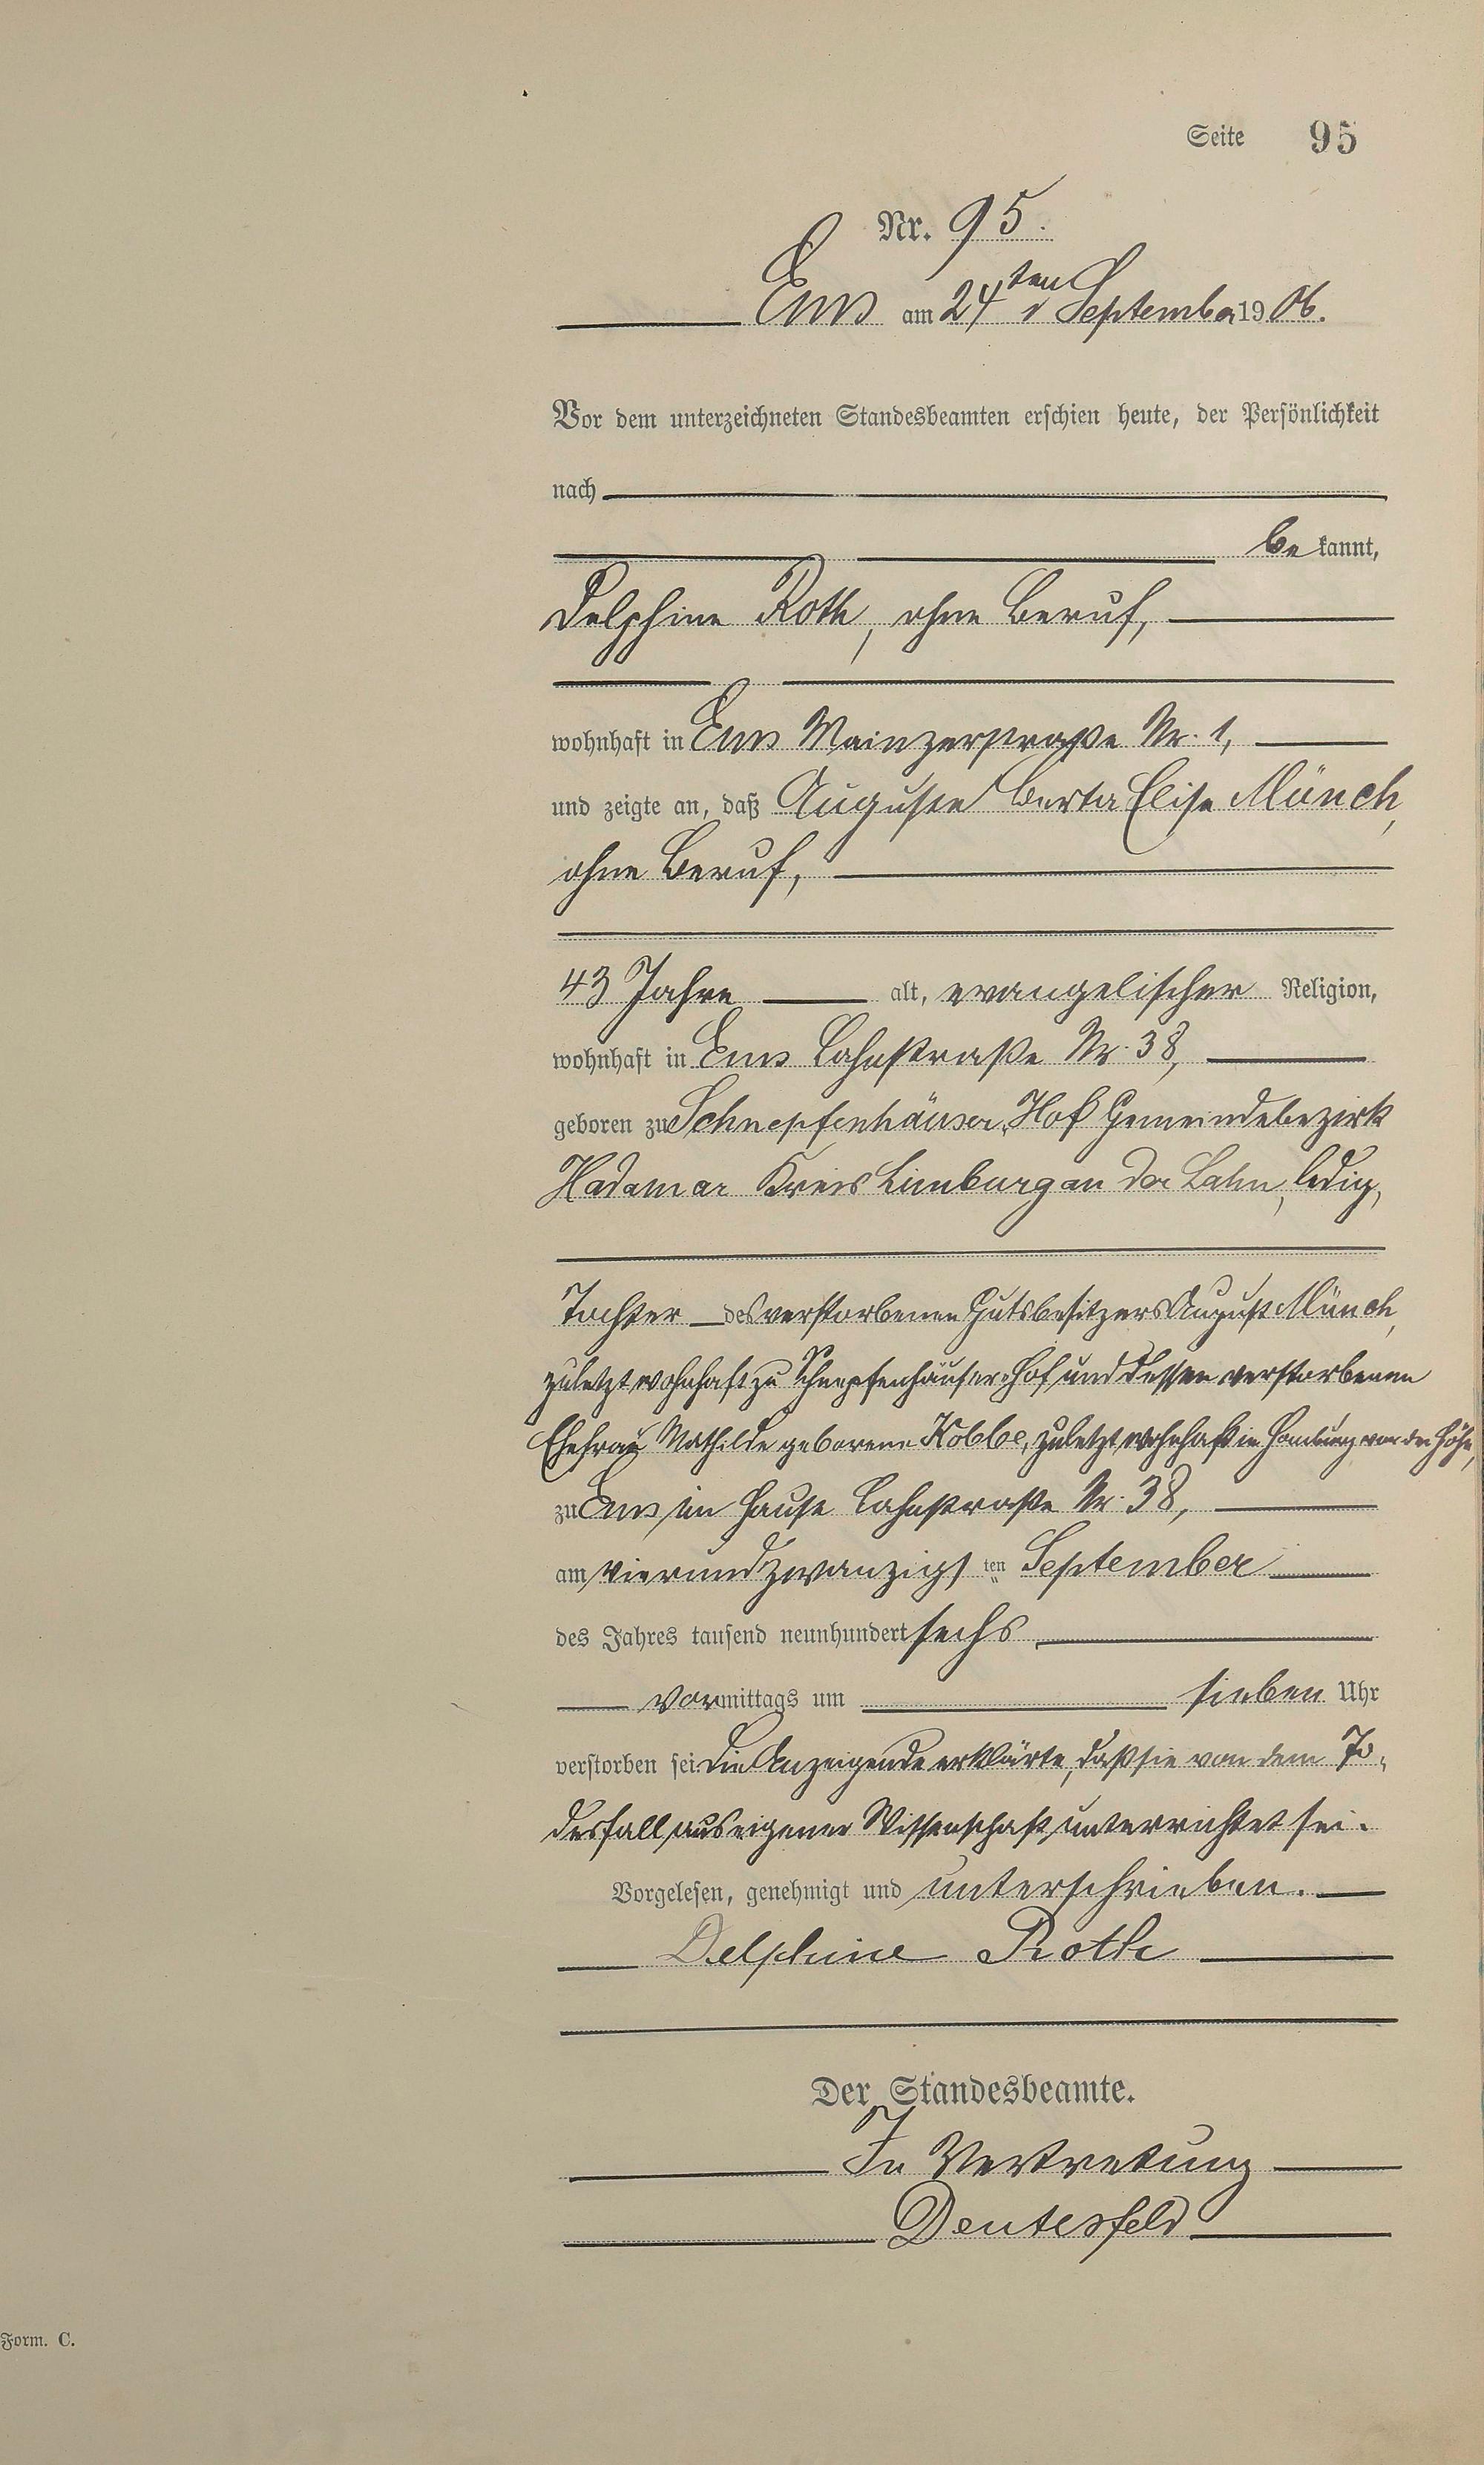 Seite 95
Nr. 95.
Ems am 24ten September 1906.
Vor dem unterzeichneten Standesbeamten erschien heute, der Persönlichkeit
nach
be kannt,
Delphine Roth, ohne Beruf,
wohnhaft in Ems Mainzerstraße Nr. 1,
und zeigte an, daß Auguste Berta Elise Münch,
ohne Beruf,
43 Jahre alt, evangelischer Religion,
wohnhaft in Ems Lahnstraße Nr. 38,
geboren zu Schnepfenhäuser Hof Gemeindebezirk
Hadamar Kreis Limburg an der Lahn, ledig,
Tochter des verstorbenen Gutsbesitzers August Münch,
zuletzt wohnhaft zu Schnepfenhäuser-Hof und dessen verstorbenen
Ehefrau Mathilde geborene Kobbe, zuletzt wohnhaft in Homburg vor der Höhe,
zu Ems im Hause Lahnstraße Nr. 38,
am vierundzwanzigsten September
des Jahres tausend neunhundert sechs
vormittags um sieben Uhr
verstorben sei. Die Anzeigende erklärte, daß sie von dem To-
desfall aus eigener Wissenschaft unterrichtet sei.
Vorgelesen, genehmigt und unterschrieben.
Delphine Roth
Der Standesbeamte.
In Vertretung
Deutesfeld
Form. C.